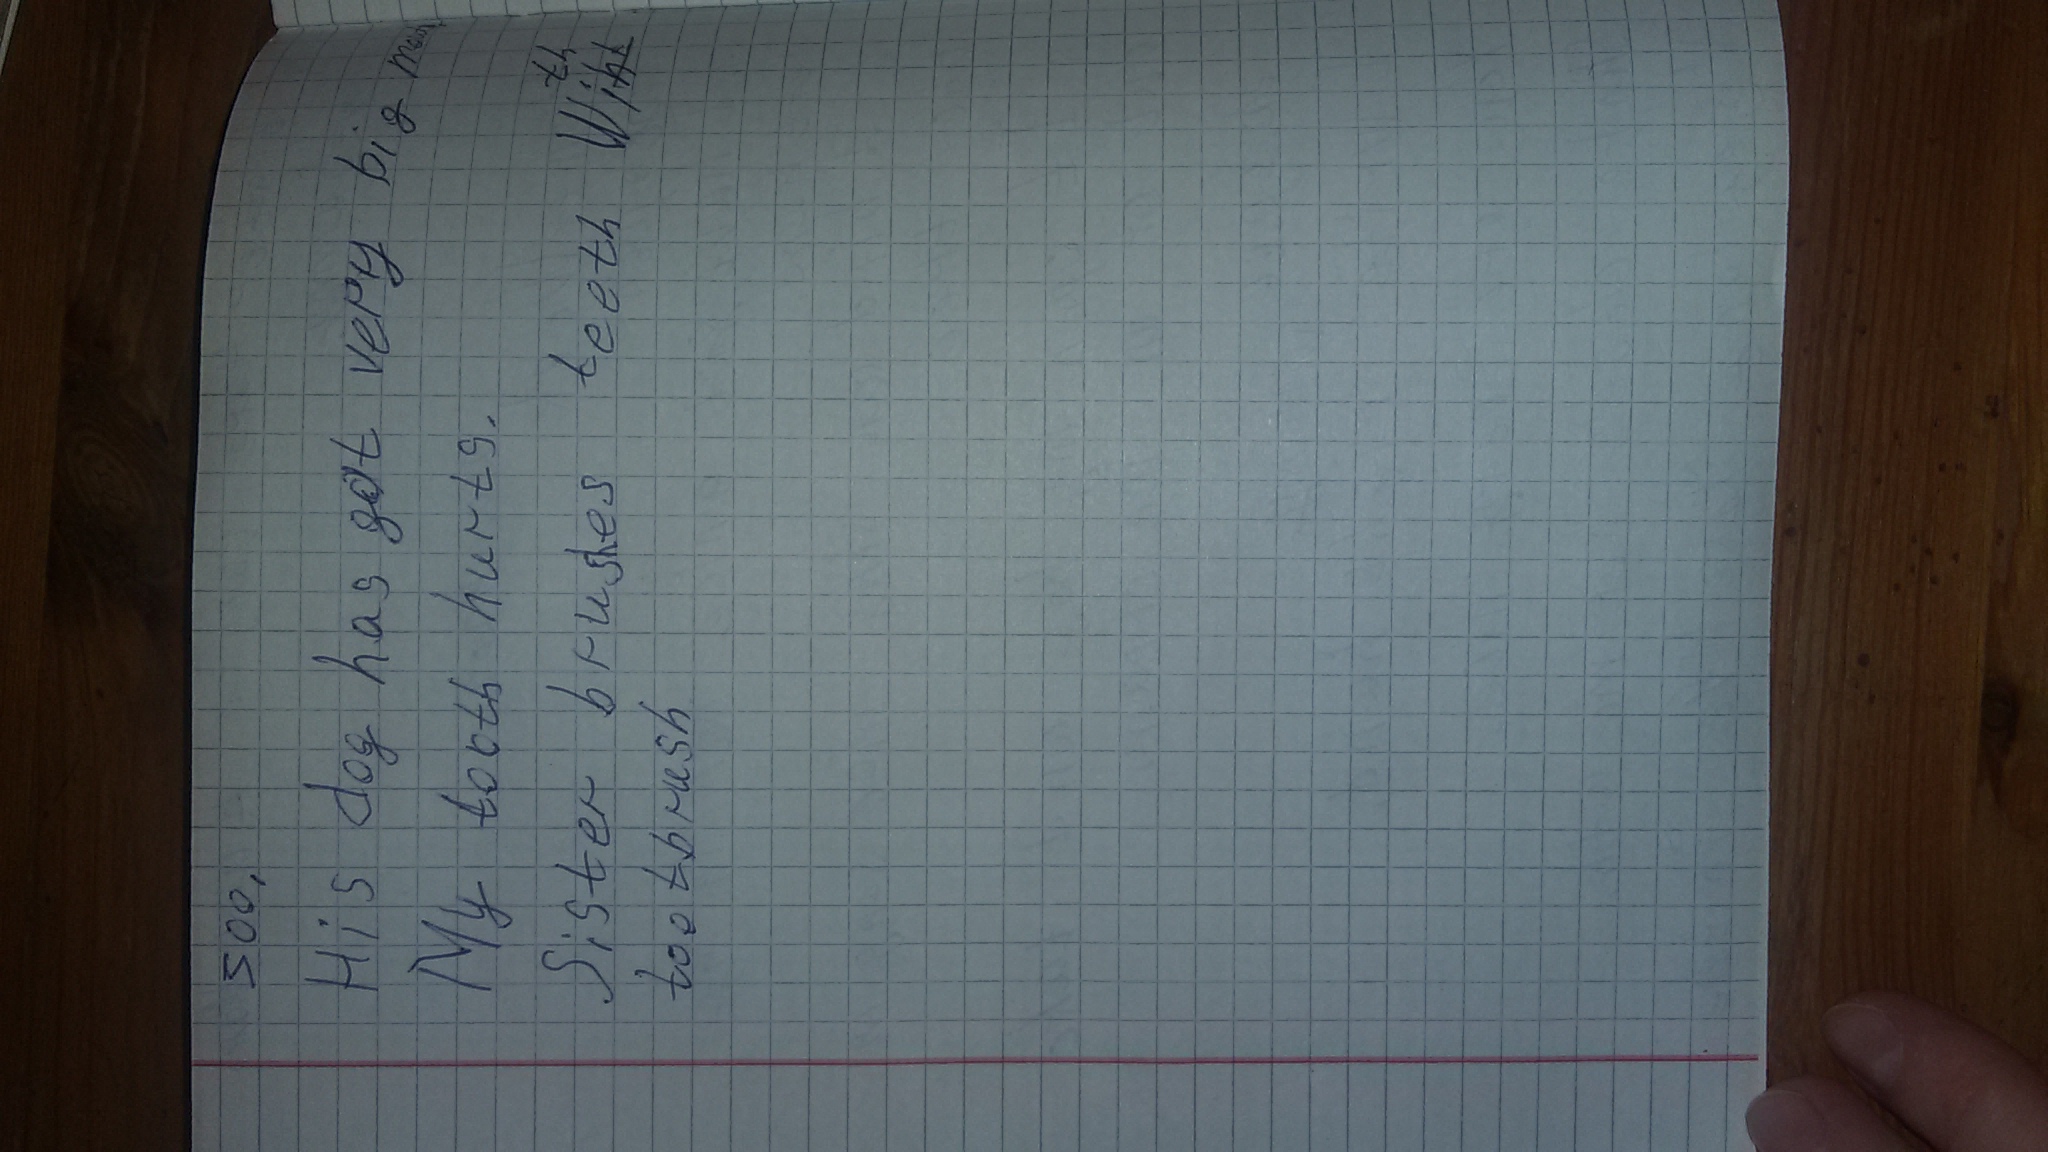 soo.
His dog has got very big
My tooth hurts.
Sister brushes teeth With
tootbrush